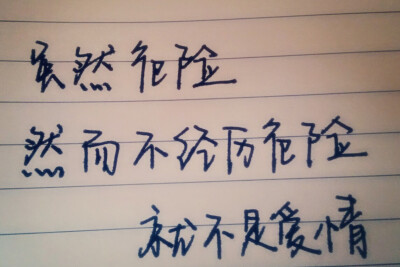 虽然危险
然而不经历危险
就不是爱情